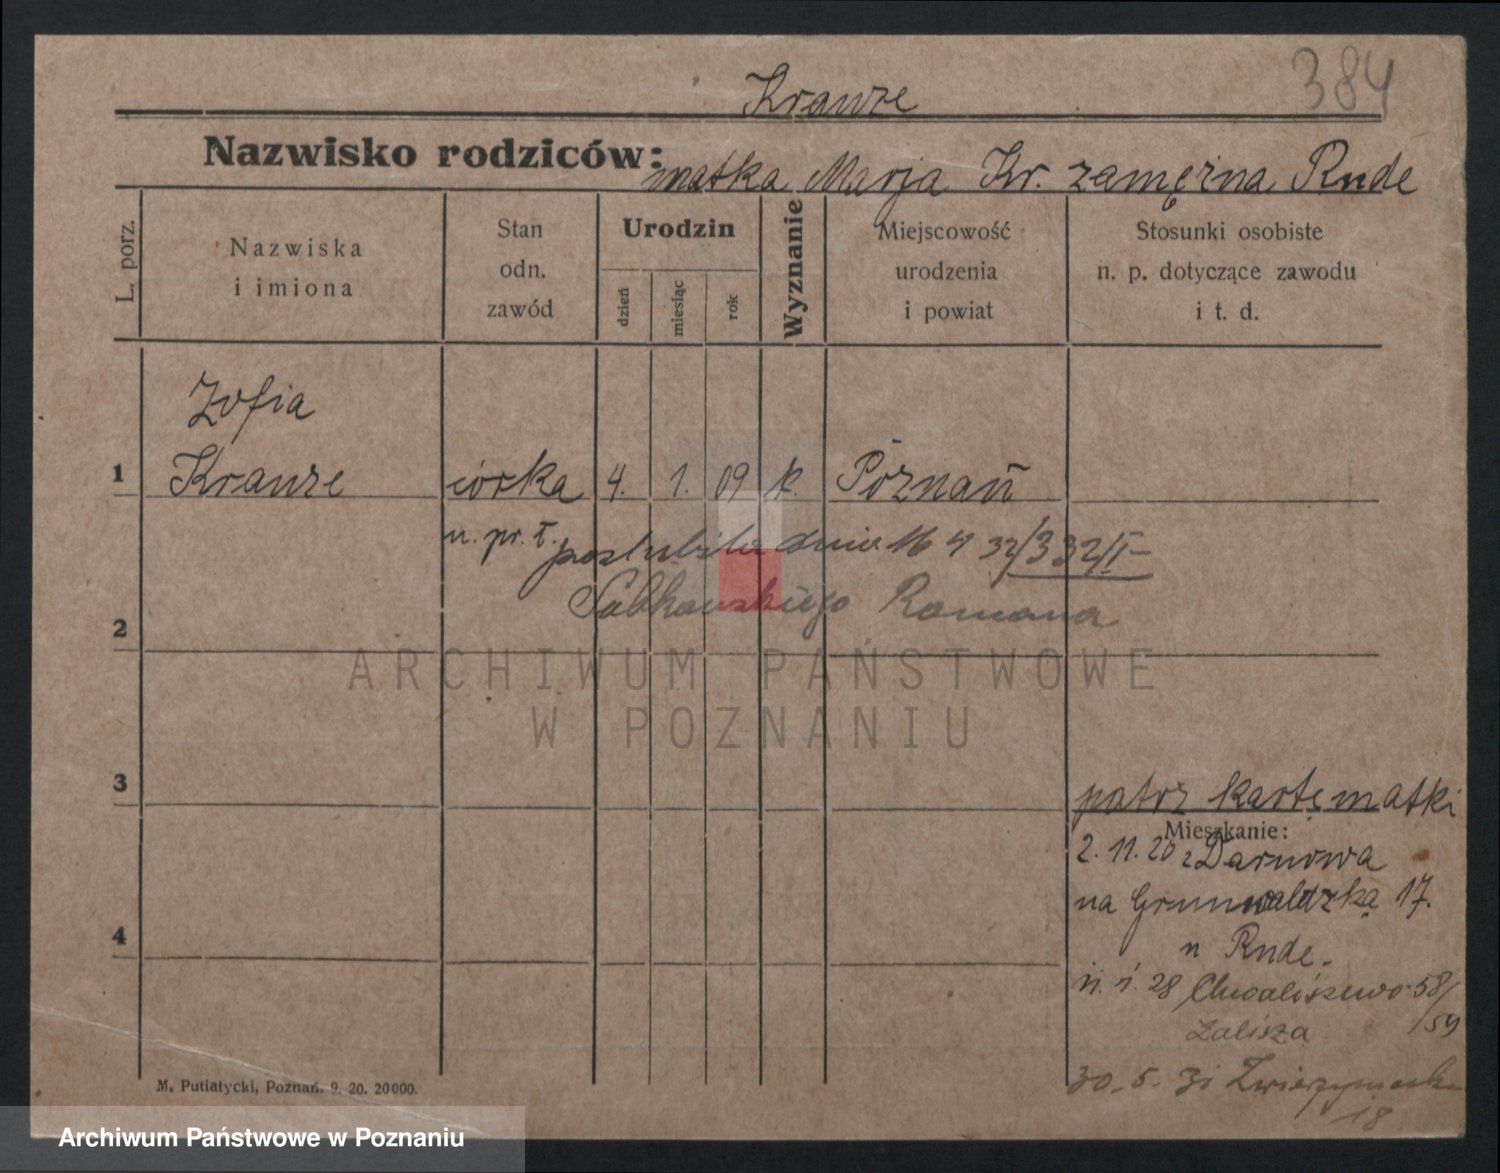 384
Krauze
Nazwisko rodziców: matka Marja Kr. zamężna Rude
L. porz.
Nazwiska
i imiona
Stan
odn.
zawód
Urodzin
dzień
miesiąc
rok
Wyznanie
Miejscowość
urodzenia
i powiat
Stosunki osobiste
n. p. dotyczące zawodu
i t. d.
Zofia
1 Krauze córka 4. 1. 09 k. Poznań
n. pr. ł. poślubiła dnia 16 4 32/332/I
Romana
2
ARCHIWUM PAŃSTWOWE
W POZNANIU
3
patrz kartę matki
Mieszkanie:
2. 11. 20 z Darnowa
na Grunwaldzką 17.
u Rude.
28 Chwaliszewo 58/
/59
Zalisza
4
30. 5. 31 Zwierzyniecka
18
M. Putiatycki, Poznań. 9. 20. 20000.
Archiwum Państwowe w Poznaniu